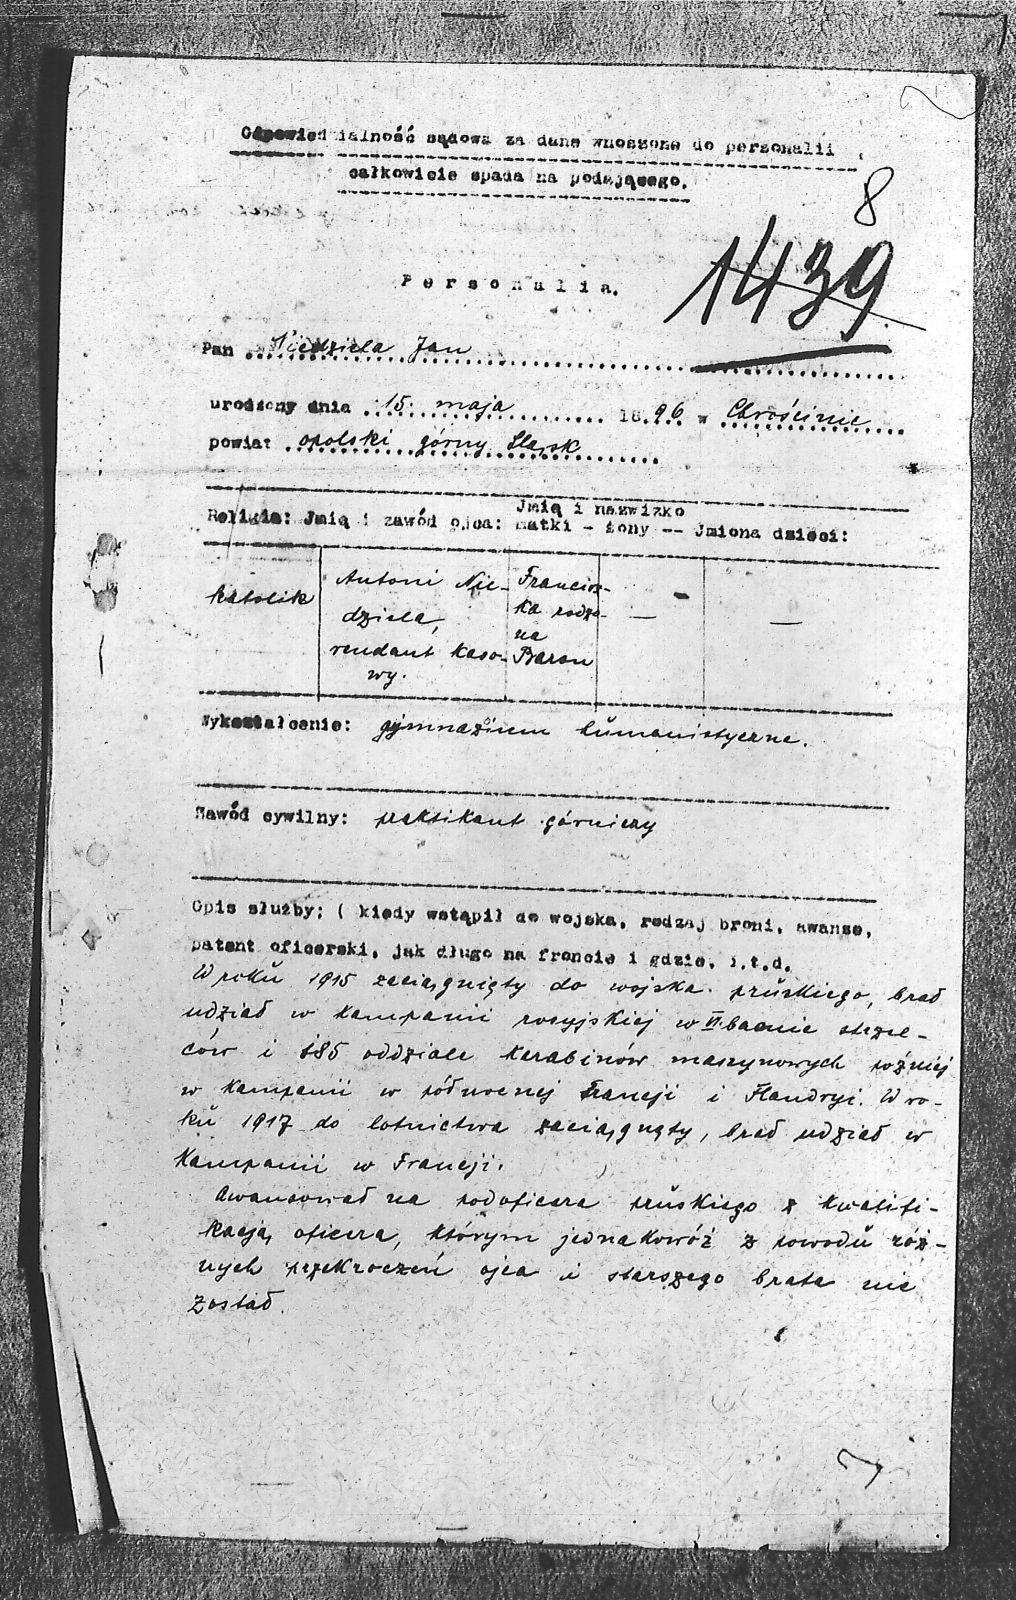 Odpowiedzialność sądowa za dane wnoszone do personalii
całkowicie spada na podającego.
8
1439
Personalia.
Pan Niedziela Jan
urodzony dnia 15. maja 1896 w Chrościnie
powiat opolski górny Śląsk
Jmię i nazwizko
Religia: Jmię i zawód ojca: matki - żony -- Jmiona dzieci:
katolik
Antoni Nie-
dziela,
rendant kaso-
wy.
Francisz-
ka rodzo-
na
Baron
—
-
—
Wykształcenie: gymnazium humanistyczne.
Zawód cywilny: praktikant górniczy
Opis służby: ( kiedy wstąpił do wojska, rodzaj broni, awanse,
patent oficerski, jak długo na froncie i gdzie, i.t.d.
W roku 1915 zaciągnięty do wojska pruskiego, brał
udział w kampanii rosyjskiej w VI. baonie strzel-
ców i 185 oddziale karabinów maszynowych później
w kampanii w północnej Francji i Flandryi. W ro-
ku 1917 do lotnictwa zaciągnąty, brał udział w
Kampanii w Francji.
Awansował na podoficera pruskiego z kwalifi-
kacją oficera, którym jednakowóż z powodu róż-
nych przekroczeń ojca i starszego brata nie
został.